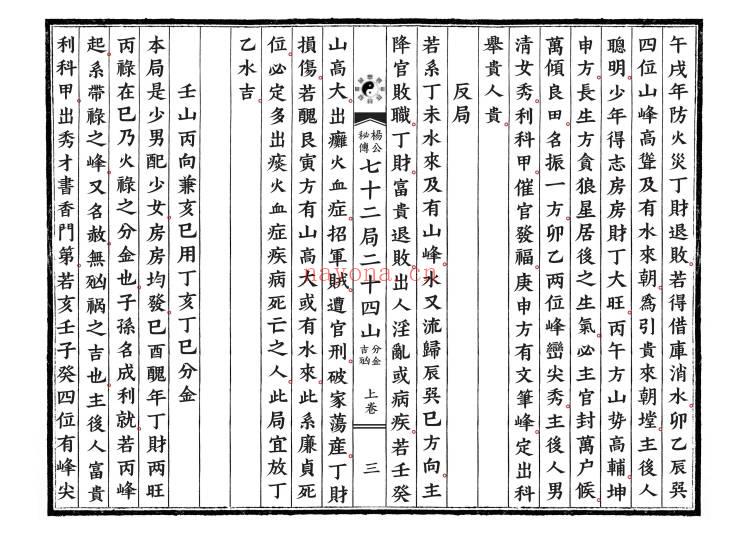 午戌年防火災丁財退敗若得借庫消水卯乙辰巽
四位山峰高聳及有水來朝為引貴來朝堂主後人
聰明少年得志房房財丁大旺丙午方山势高輔坤
申方長生方貪狼星居後之生氣必主官封萬户候
萬傾良田名振一方卯乙两位峰巒尖秀主後人男
清女秀利科甲催官發福庚申方有文筆峰定出科
舉貴人貴
反局
若系丁未水來及有山峰水又流歸辰巽巳方向主
降官敗職丁財富貴退敗出人淫亂或病疾若壬癸
楊公秘傳七十二局二十四山分金吉凶 上卷 三
山高大出癱火血症招軍賊遭官刑破家蕩産丁財
損傷若醜艮寅方有山高大或有水來此系廉貞死
位必定多出痰火血症疾病死亡之人此局宜放丁
乙水吉
壬山丙向兼亥巳用丁亥丁巳分金
本局是少男配少女房房均發巳酉醜年丁財两旺
丙祿在巳乃火祿之分金也子孫名成利就若丙峰
起系帶祿之峰又名赦無凶祸之吉也主後人富貴
利科甲出秀才書香門第若亥壬子癸四位有峰尖
nayona.cn